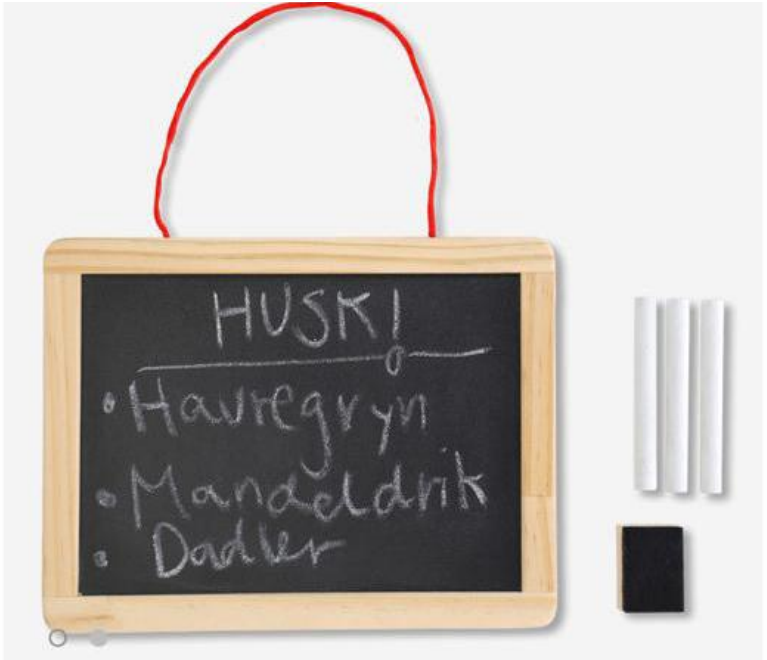 HUSK!
• Havregryn
• Mandeldrik
• Dadler